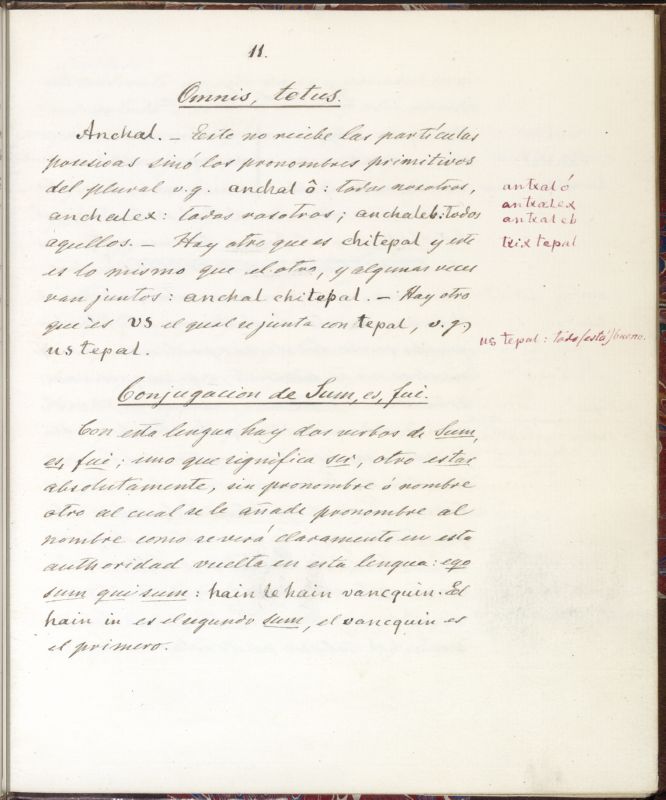 11.
Omnis, totus.
Anchal. – Este no recibe las partículas
posisivas sinó los pronombres primitivos
del plural v.g. anchal ô: todos nosotros,
anchalex: todos vosotros; anchaleb: todos
aquellos. – Hay otro que es chitepal y este
es lo mismo que el otro, y algunas veces
van juntos: anchal chitepal. – Hay otro
que es vs el qual se junta con tepal, v.g,
us tepal.
antxal ó
antxalex
antxaleb
txixtepal
us tepal: todo (está) bueno.
Conjugacion de Sum, es, fui.
Con esta lengua hay dos verbos de Sum,
es, fui; uno que significa ser, otro estar
absolutamente, sin pronombre ó nombre
otro al cual se le añade pronombre al
nombre como se verá claramente en esta
authoridad vuelta en esta lengua: ego
sum qui sum: hain le hain vancquin. El
hain in es el segundo sum, el vancquin es
el primero.